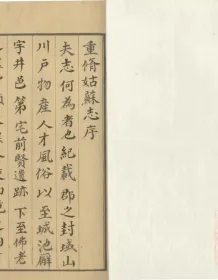 重脩姑蘇志序
夫志何為者也紀載郡之封域山
川戶物產人才風俗以至城池廨
宇井邑第宅前賢遺跡下至佛老